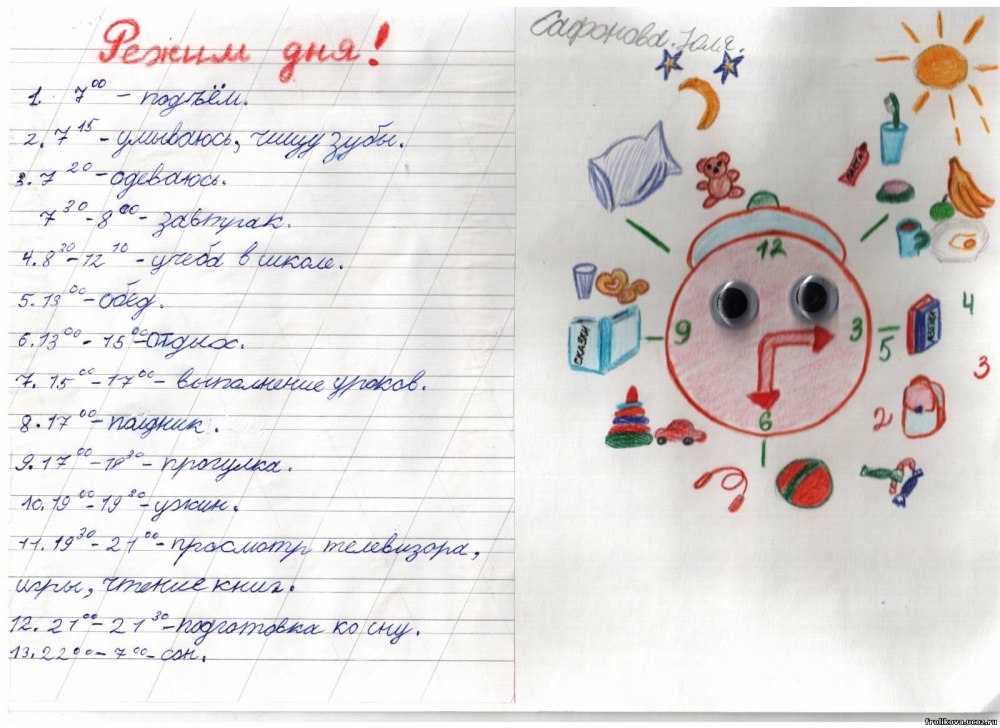 Режим дня!
1. 7⁰⁰ - подъём.
2. 7¹⁵ - умываюсь, чищу зубы.
3. 7²⁰ - одеваюсь.
7³⁰ - 8⁰⁰ - завтрак.
4. 8³⁰ - 12¹⁰ - учеба в школе.
5. 13⁰⁰ - обед.
6. 13⁰⁰ - 15⁰⁰ - отдых.
7. 15⁰⁰ - 17⁰⁰ - выполнение уроков.
8. 17⁰⁰ - полдник.
9. 17⁰⁰ - 18³⁰ - прогулка.
10. 19⁰⁰ - 19³⁰ - ужин.
11. 19³⁰ - 21⁰⁰ - просмотр телевизора,
игры, чтение книг.
12. 21⁰⁰ - 21³⁰ - подготовка ко сну.
13. 22⁰⁰ - 7⁰⁰ - сон.
Сафонова Юля.
ПАСТА
12
9
3
6
СКАЗКИ
АЗБУКА
4
5
3
2
frulikova.ucoz.ru